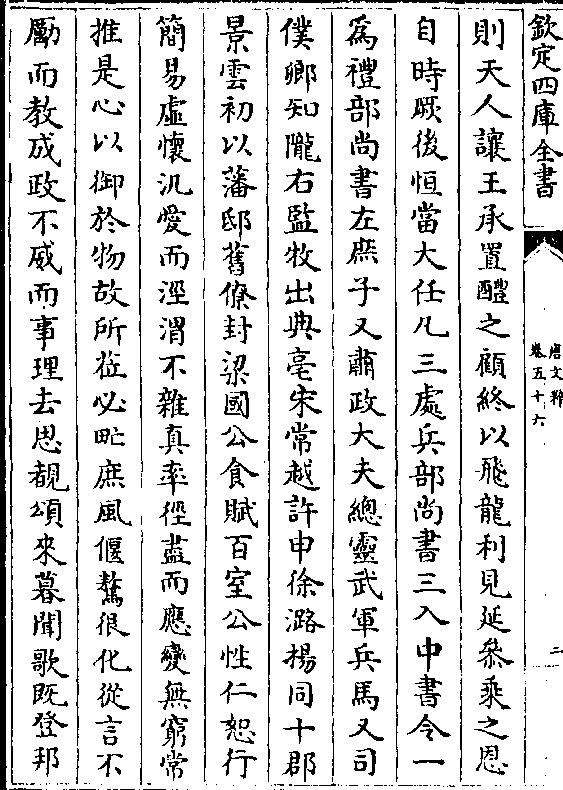 欽定四庫全書
唐文粹
卷五十六
二
則天人讓王承置醴之顧終以飛龍利見延叅乘之恩
自時厥後恒當大任凡三處兵部尚書三入中書令一
爲禮部尚書左庶子又肅政大夫總靈武軍兵馬又司
僕卿知隴右監牧出典亳宋常越許申徐潞楊同十郡
景雲初以藩邸舊僚封梁國公食賦百室公性仁恕行
簡易虛懷汎愛而涇渭不雜真率徑盡而應變無窮常
推是心以御於物故所莅必氓庶風偃驁很化從言不
勵而教成政不威而事理去思覩頌來暮聞歌既登邦